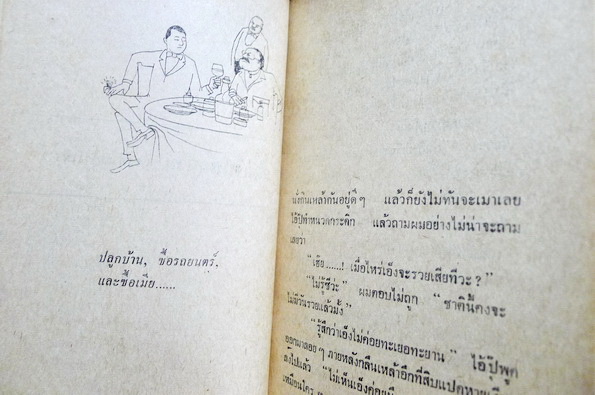 ปลูกบ้าน, ซื้อรถยนตร์,
และซื้อเมีย......
นั่งกินเหล้ากันอยู่ดีๆ แล้วก็ยังไม่ทันจะเมาเลย
ไอ้ปุ๊ทำหนวดกระดิก แล้วถามผมอย่างไม่น่าจะถาม
เลยว่า
"เฮ้ย......! เมื่อไหร่เอ็งจะรวยเสียทีวะ ?"
"ไม่รู้ซีวะ" ผมตอบไม่ถูก "ชาตินี้คงจะ
ไม่มีวันรวยแล้วมั้ง"
"รู้สึกว่าเอ็งไม่ค่อยทะเยอทะยาน" ไอ้ปุ๊พูด
ออกมาลอยๆ ภายหลังกลืนเหล้าอีกที่สิบแปดหาย
ลงไปแล้ว "ไม่เห็นเอ็งค่อย
เหมือนใคร